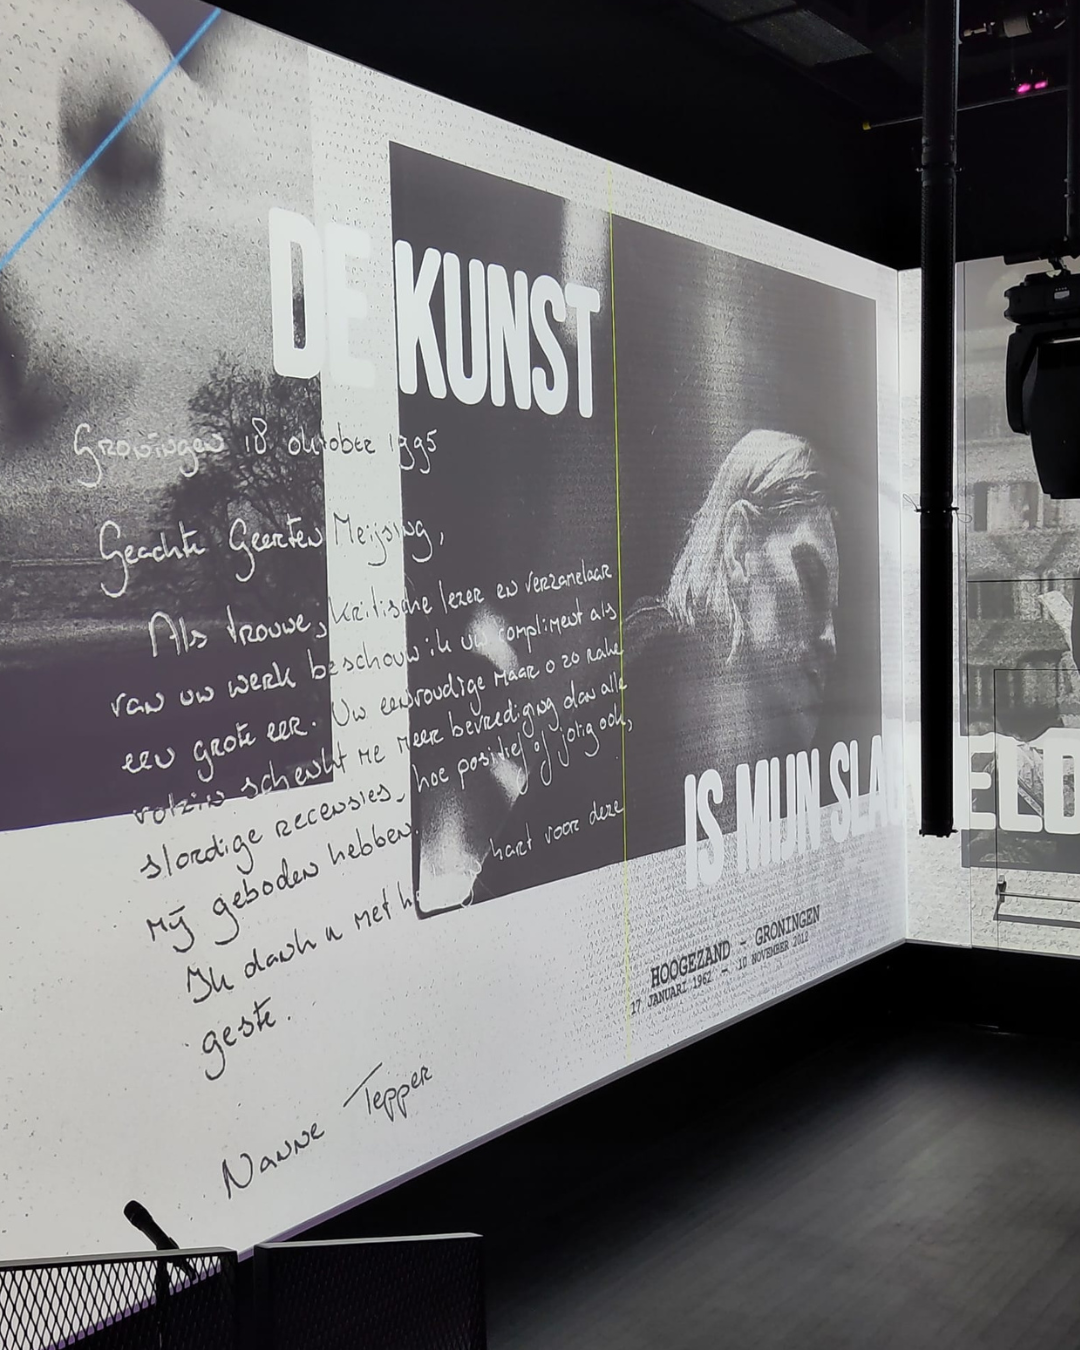 DE KUNST
Groningen 18 oktober 1995
Geachte Geerten Meijsing,
Als trouwe, kritische lezer en verzamelaar
van uw werk beschouw ik uw compliment als
een grote eer. Uw eenvoudige maar o zo rake
volzin schenkt me meer bevrediging dan alle
slordige recensies, hoe positief of jotig ook,
mij geboden hebben.
Ik dank u met h hart voor deze
geste.
Nanne Tepper
IS MIJN SLA ELD
HOOGEZAND - GRONINGEN
17 JANUARI 1962 - 10 NOVEMBER 2012